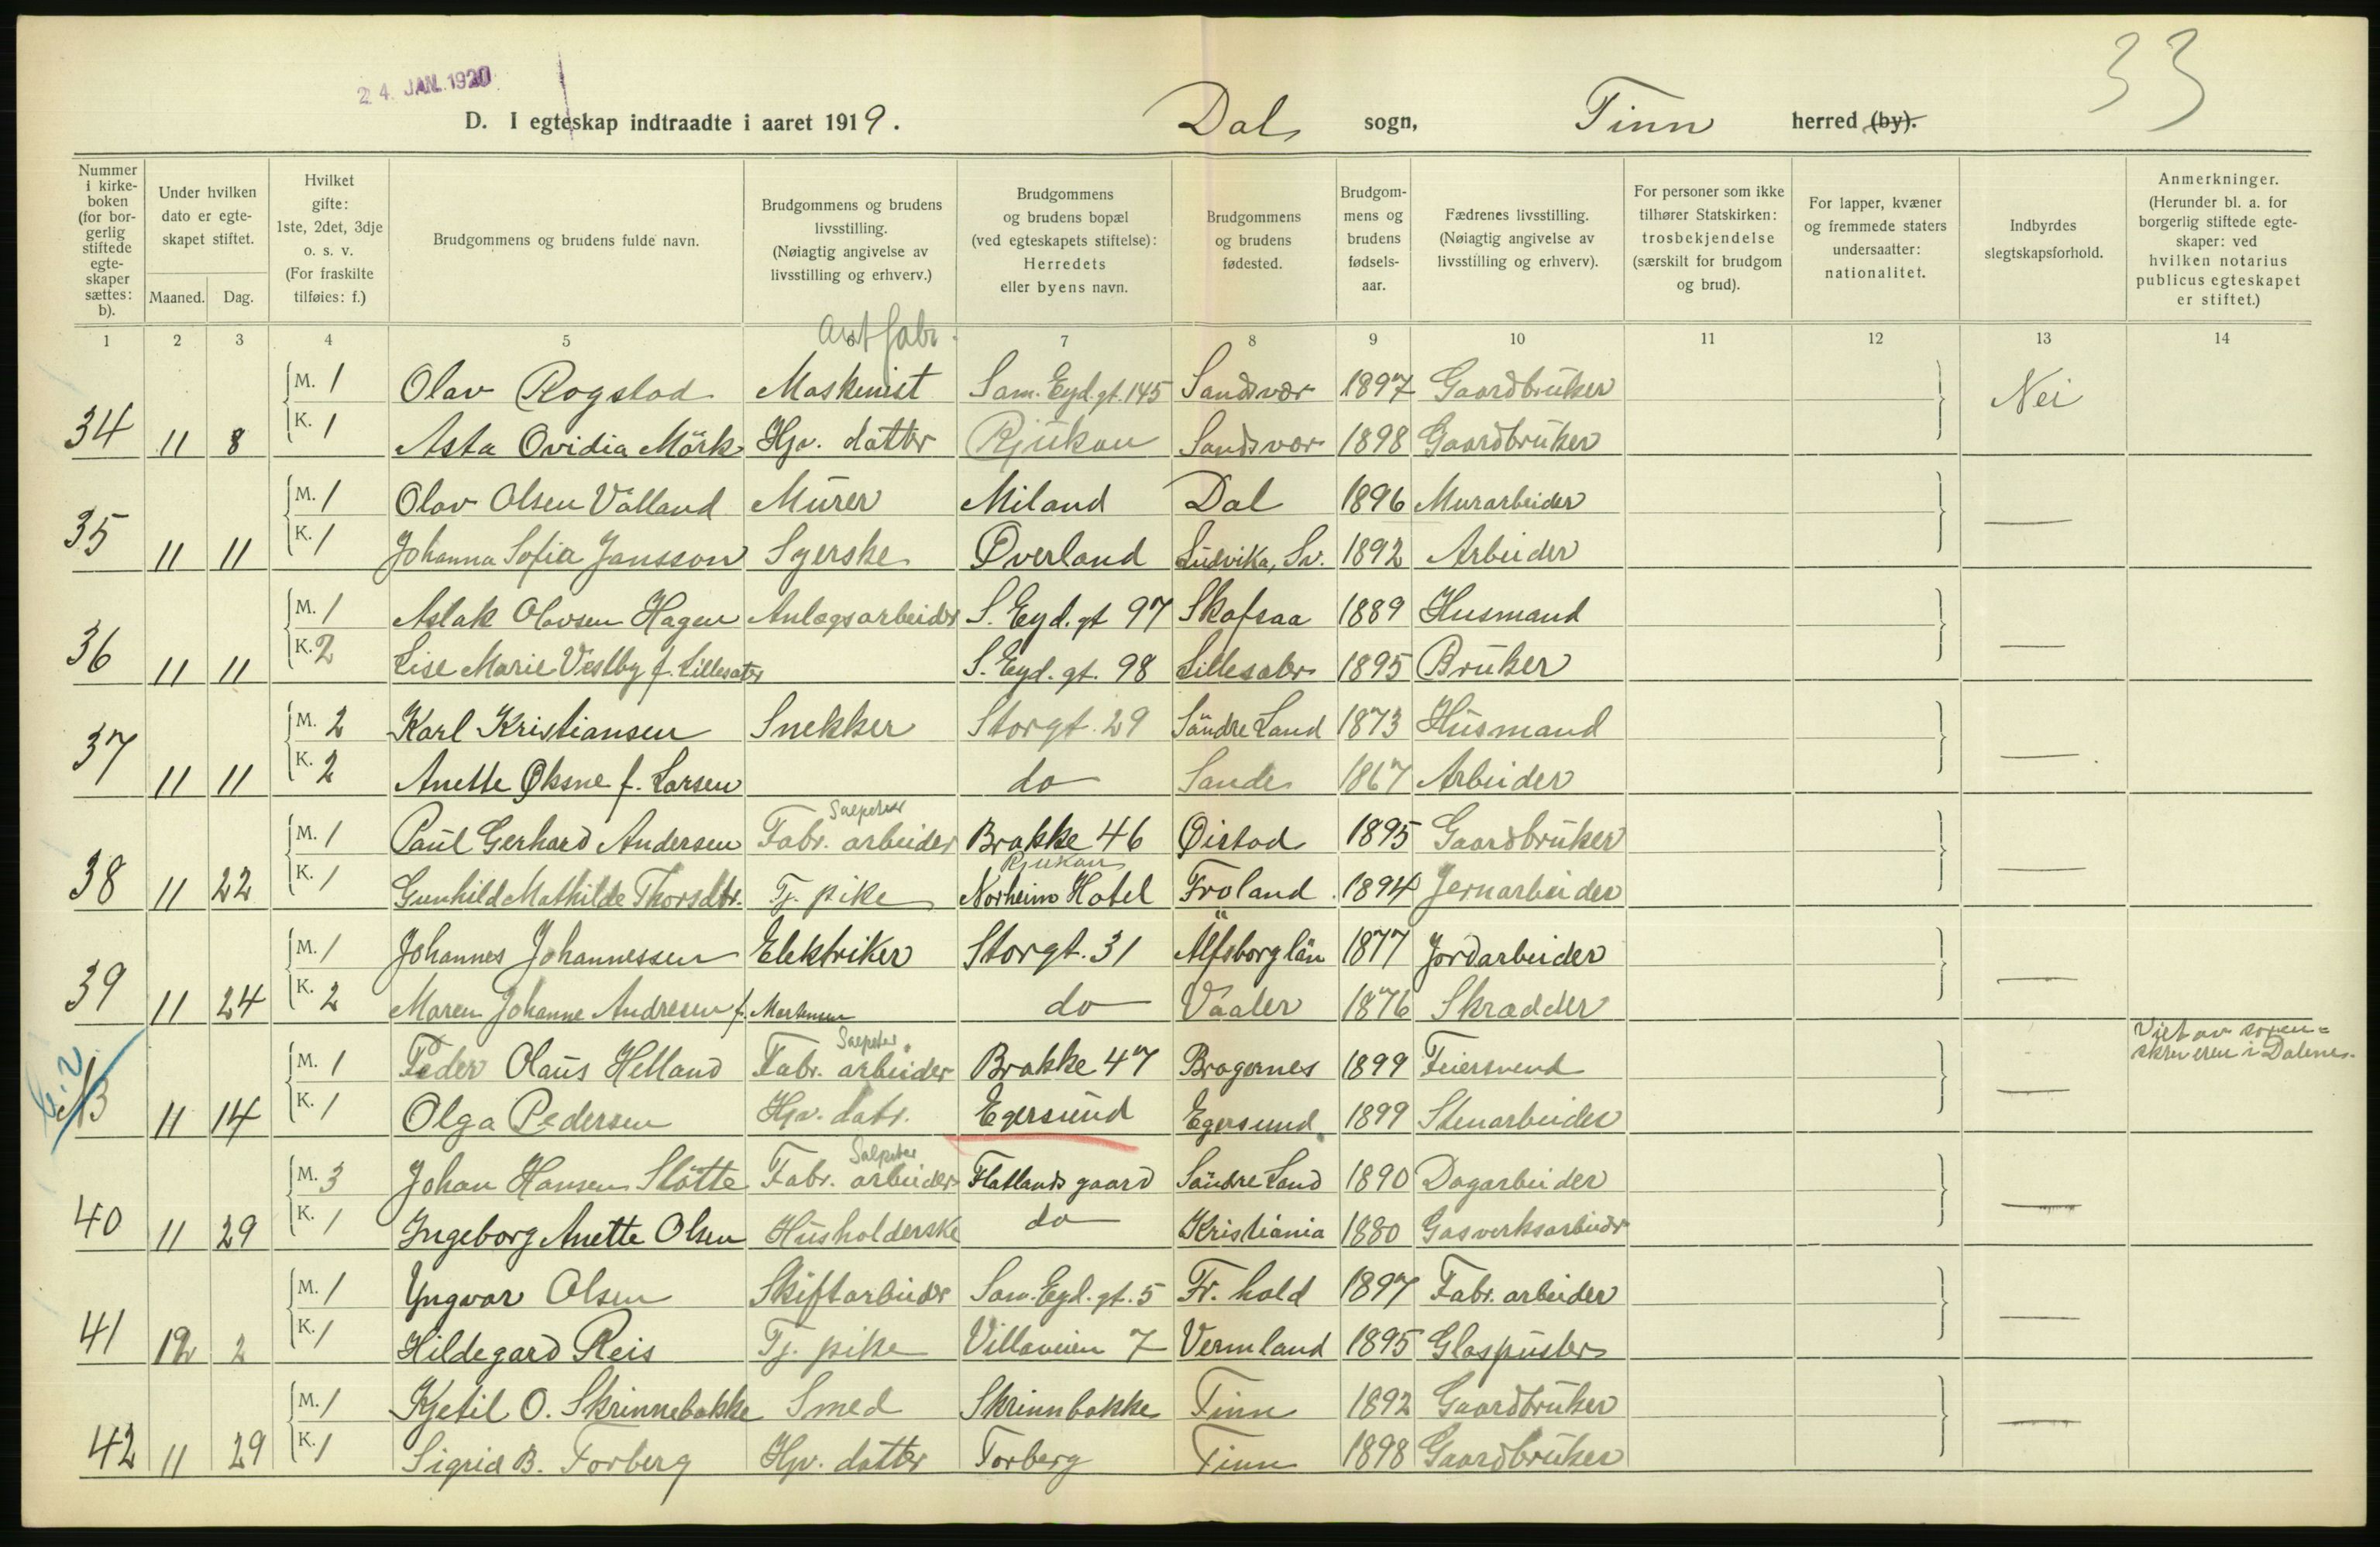 33
24. JAN. 1920
D. I egteskap indtraadte i aaret 1919. Dal sogn, Tinn herred (by).
Nummer i kirke-boken (for bor-gerlig stiftede egte-skaper sættes: b). Under hvilken dato er egte-skapet stiftet. Maaned. Dag. Hvilket gifte: 1ste, 2det, 3dje o. s. v. (For fraskilte tilføies: f.) Brudgommens og brudens fulde navn. Brudgommens og brudens livsstilling. (Nøiagtig angivelse av livsstilling og erhverv.) Brudgommens og brudens bopæl (ved egteskapets stiftelse): Herredets eller byens navn. Brudgommens og brudens fødested. Brudgom-mens og brudens fødsels-aar. Fædrenes livsstilling. (Nøiagtig angivelse av livsstilling og erhverv). For personer som ikke tilhører Statskirken: trosbekjendelse (særskilt for brudgom og brud). For lapper, kvæner og fremmede staters undersaatter: nationalitet. Indbyrdes slegtskapsforhold. Anmerkninger. (Herunder bl. a. for borgerlig stiftede egte-skaper: ved hvilken notarius publicus egteskapet er stiftet.)
1 2 3 4 5 6 7 8 9 10 11 12 13 14
M. 1 Olav Rogstad Maskinist Sam. Eyd. gt. 145 Sandsvær 1897 Gaardbruker Nei
34 11 8 K. 1 Asta Ovidia Mörk Hjv. datter Rjukan Sandsvær 1898 Gaardbruker
M. 1 Olav Olsen Välland Murer Miland Dal 1896 Murarbeider
35 11 11 K. 1 Johanna Sofia Jansson Syerske Øverland Ludvika, Sv. 1892 Arbeider —
M. 1 Aslak Olavsen Hagen Anlægsarbeider S. Eyd. gt 97 Skafsaa 1889 Husmand
36 11 11 K. 2 Lise Marie Vestby f. Lillesæter S. Eyd. gt. 98 Lillesæter 1895 Bruker —
M. 2 Karl Kristiansen Snekker Storgt. 29 Söndre Land 1873 Husmand
37 11 11 K. 2 Anette Øksne f. Larsen do Sande 1867 Arbeider —
Salpeter
M. 1 Paul Gerhard Andersen Fabr. arbeider Brakke 46 Øistad 1895 Gaardbruker
Rjukan
38 11 22 K. 1 Gunhild Mathilde Thorsdtr. Tj. pike Norheim Hotel Froland 1894 Jernarbeider —
M. 1 Johannes Johannessen Elektriker Storgt. 31 Älfsborg län 1877 Jordarbeider
39 11 24 K. 2 Maren Johanne Andresen f. Martinsen do Vaaler 1876 Skrædder —
Salpeter
M. 1 Peder Olaus Helland Fabr. arbeider Brakke 47 Bragernes 1899 Feiersvend Viet av soren=skriveren i Dalene.
11 14 K. 1 Olga Pedersen Hjv. datr. Egersund Egersund 1899 Stenarbeider —
Salpeter
M. 3 Johan Hansen Slötte Fabr. arbeider Flatlands gaard Söndre Land 1890 Dagarbeider
40 11 29 K. 1 Ingeborg Anette Olsen Husholderske do Kristiania 1880 Gasverksarbeider —
M. 1 Yngvar Olsen Skiftarbeider Sam. Eyd. gt. 5 Fr. hald 1897 Fabr. arbeider
41 12 2 K. 1 Hildegard Reis Tj. pike Villaveien 7 Vermland 1895 Glaspuster —
M. 1 Kjetil O. Skrinnebakke Smed Skrinnbakke Tinn 1892 Gaardbruker
42 11 29 K. 1 Sigrid B. Torberg Hjv. datter Torberg Tinn 1898 Gaardbruker —